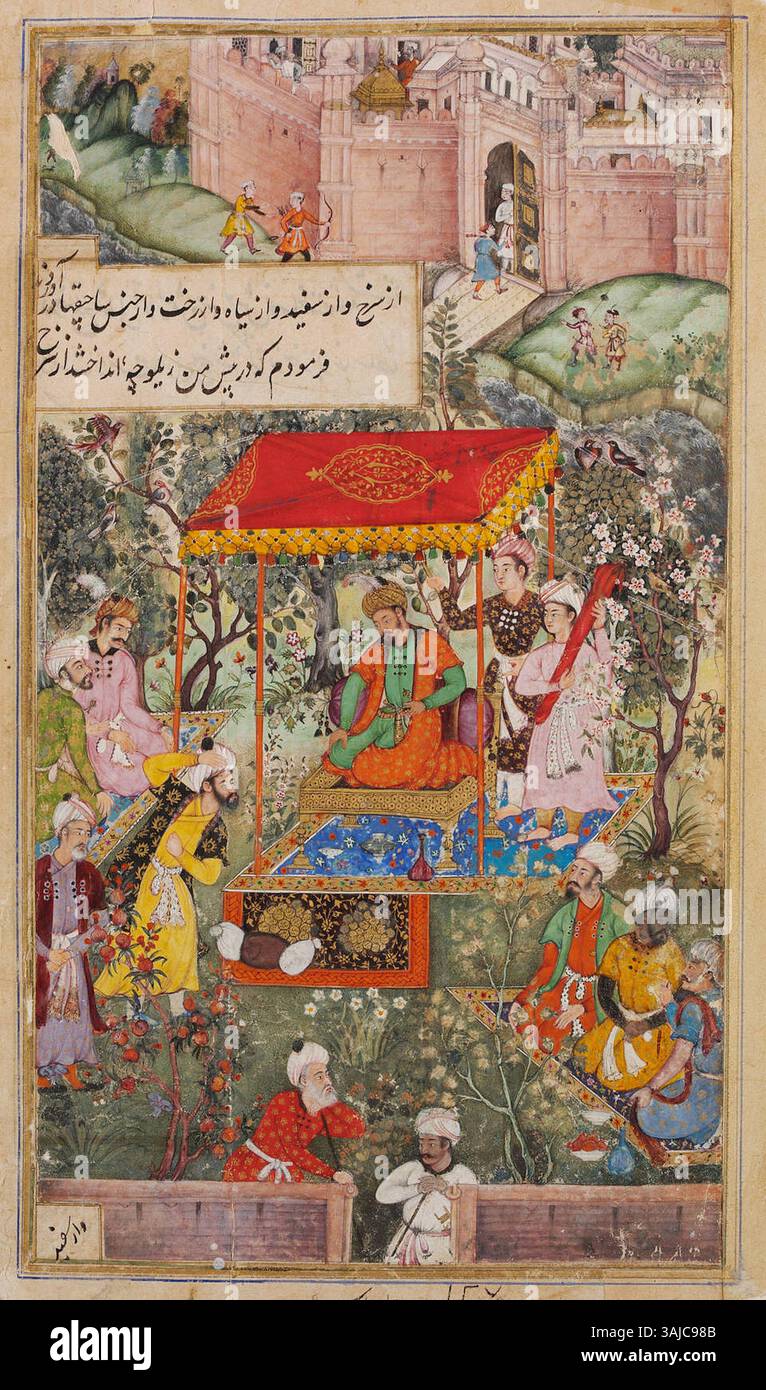 از سرخ و از سفید و از سیاه و از رخت و از جنس
فرمودم که در پیش من زیلوچه انداختند از سرخ
و از سفید
alamy
Image ID: 3AJC98B
www.alamy.com